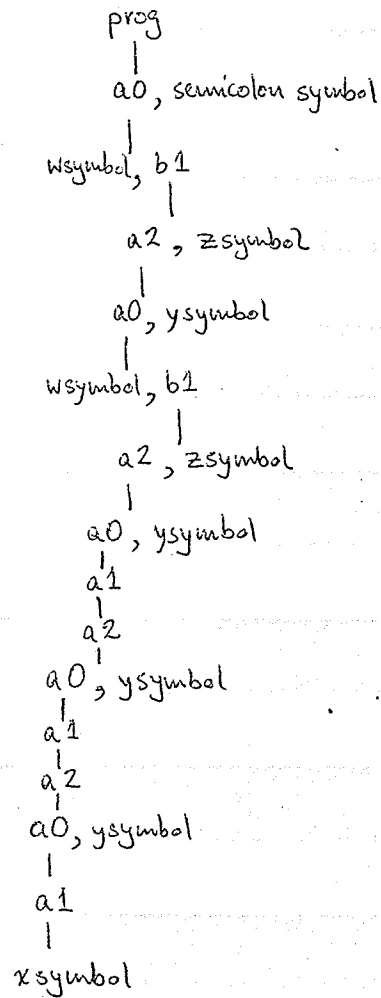 prog
a0, semicolon symbol
wsymbol, b1
a2, zsymbol
a0, ysymbol
wsymbol, b1
a2, zsymbol
a0, ysymbol
a1
a2
a0, ysymbol
a1
a2
a0, ysymbol
a1
xsymbol